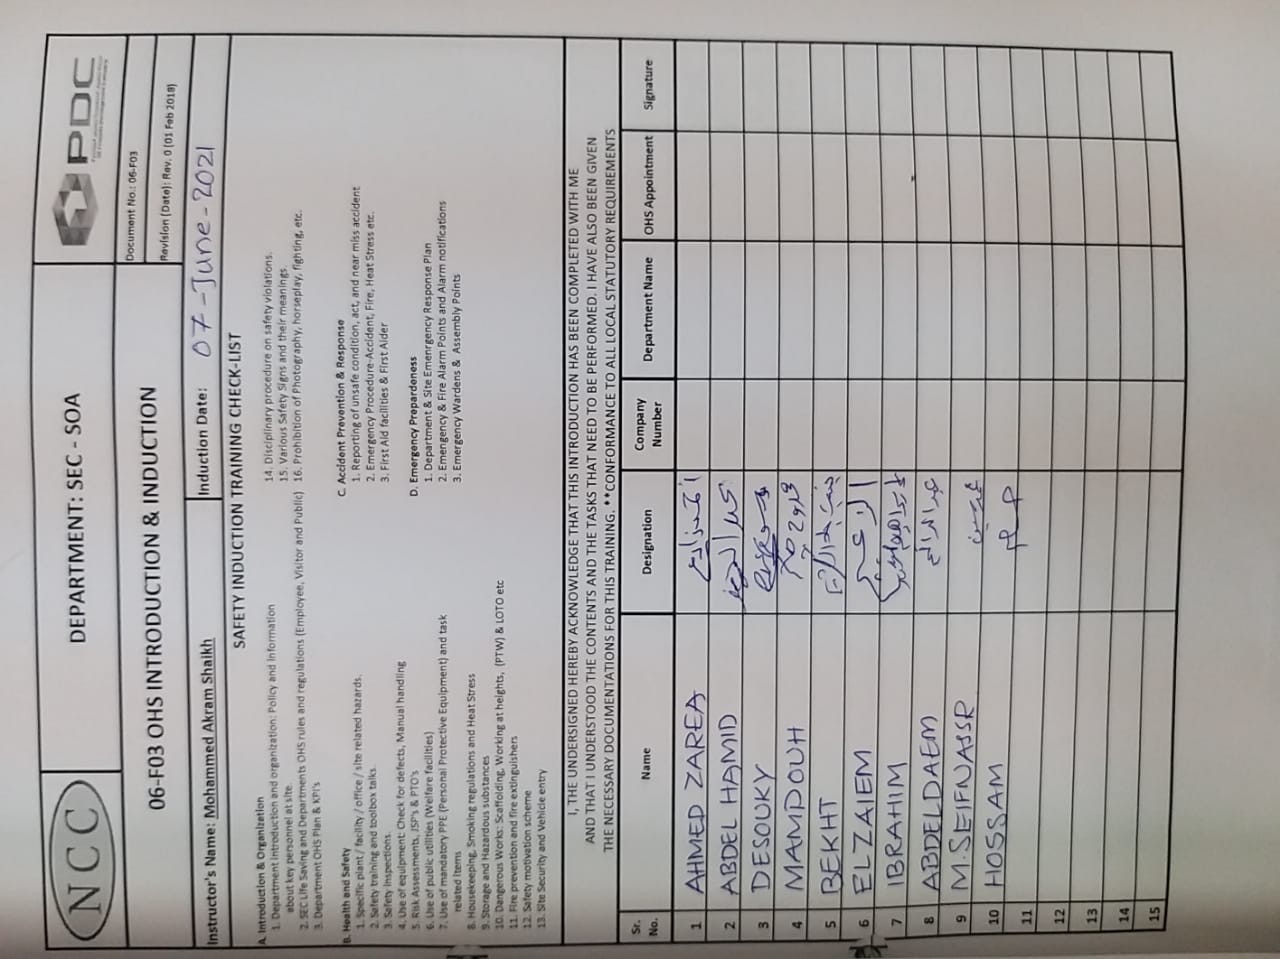 NCC
DEPARTMENT: SEC - SOA
PDC
06-F03 OHS INTRODUCTION & INDUCTION
Document No.: 06-F03
Revision (Date): Rev. 0 (01 Feb 2018)
Instructor's Name: Mohammed Akram Shaikh
Induction Date: 07-June-2021
SAFETY INDUCTION TRAINING CHECK-LIST
A. Introduction & Organization
1. Department Introduction and organization: Policy and Information
about key personnel at site.
2. SEC Life Saving and Departments OHS rules and regulations (Employee, Visitor and Public)
3. Department OHS Plan & KPI's
B. Health and Safety
1. Specific plant / facility / office / site related hazards.
2. Safety training and toolbox talks.
3. Safety Inspections.
4. Use of equipment: Check for defects, Manual handling
5. Risk Assessments, JSP's & PTO's
6. Use of public utilities (Welfare facilities)
7. Use of mandatory PPE (Personal Protective Equipment) and task
related Items
8. Housekeeping, Smoking regulations and Heat Stress
9. Storage and Hazardous substances
10. Dangerous Works: Scaffolding, Working at heights, (PTW) & LOTO etc
11. Fire prevention and fire extinguishers
12. Safety motivation scheme
13. Site Security and Vehicle entry
14. Disciplinary procedure on safety violations.
15. Various Safety Signs and their meanings.
16. Prohibition of Photography, horseplay, fighting, etc.
C. Accident Prevention & Response
1. Reporting of unsafe condition, act, and near miss accident
2. Emergency Procedure-Accident, Fire, Heat Stress etc.
3. First Aid facilities & First Aider
D. Emergency Prepardeness
1. Department & Site Emenrgency Response Plan
2. Emengency & Fire Alarm Points and Alarm notifications
3. Emergency Wardens & Assembly Points
I, THE UNDERSIGNED HEREBY ACKNOWLEDGE THAT THIS INTRODUCTION HAS BEEN COMPLETED WITH ME
AND THAT I UNDERSTOOD THE CONTENTS AND THE TASKS THAT NEED TO BE PERFORMED. I HAVE ALSO BEEN GIVEN
THE NECESSARY DOCUMENTATIONS FOR THIS TRAINING. **CONFORMANCE TO ALL LOCAL STATUTORY REQUIREMENTS
Sr. No. Name Designation Company Number Department Name OHS Appointment Signature
1 AHMED ZAREA
2 ABDEL HAMID
3 DESOUKY
4 MAMDOUH
5 BEKHT
6 ELZAIEM
7 IBRAHIM
8 ABDELDAEM
9 M.SEIFNASSR
10 HOSSAM
11
12
13
14
15